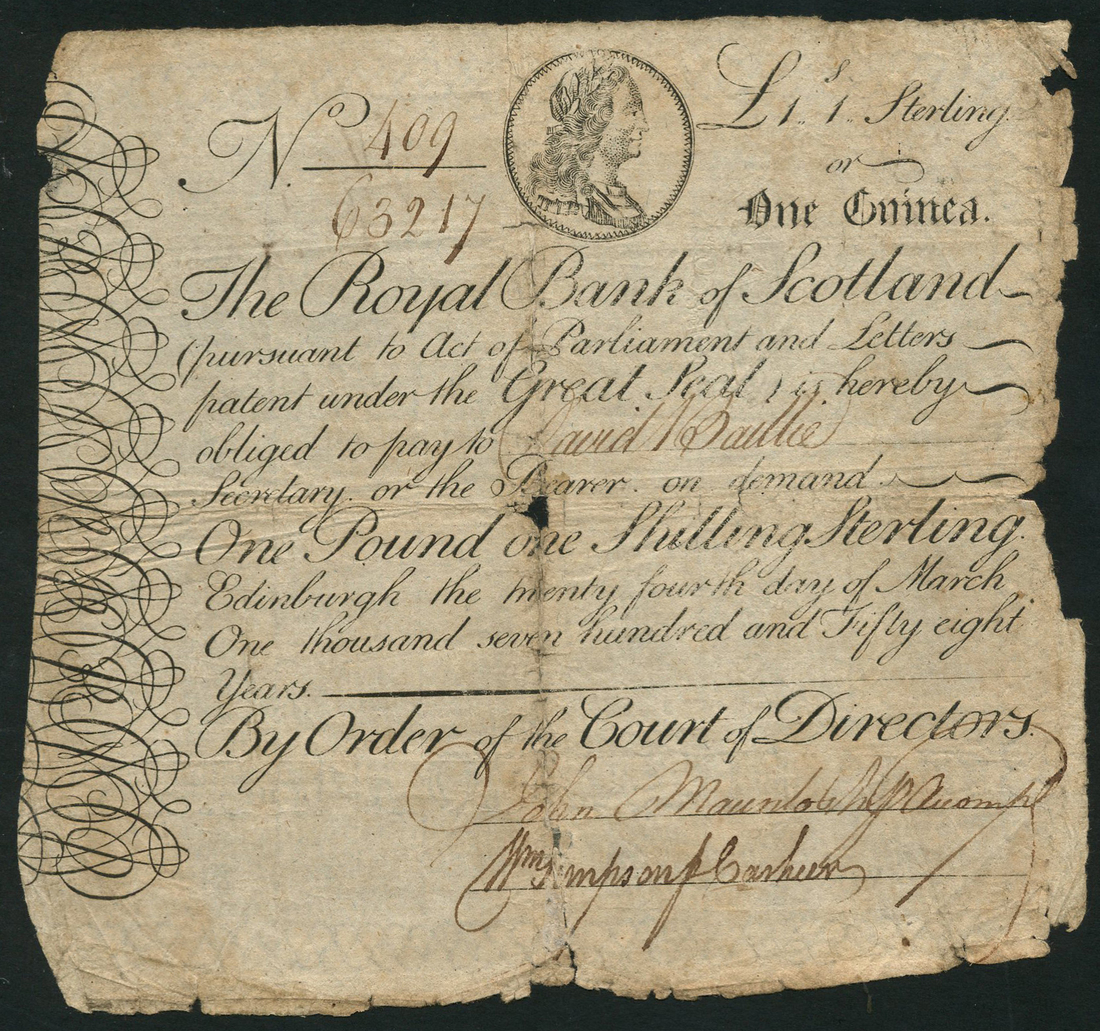 No. 409
63217
£1„ 1s„ Sterling
or
One Guinea.
The Royal Bank of Scotland
(pursuant to Act of Parliament and Letters
patent under the Great Seal) is hereby
obliged to pay to David Baillie
Secretary. or the Bearer. on demand
One Pound one Shilling Sterling.
Edinburgh the twenty fourth day of March
One thousand seven hundred and Fifty eight
Years.
By Order of the Court of Directors.
John
Wm Simpson p Cashier